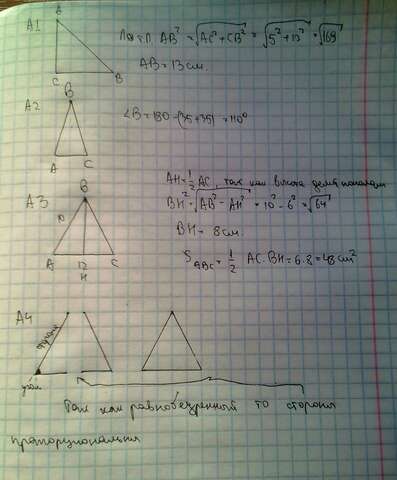 A1
A
По т.П. AB² = √AC² + CB² = √5² + 12² = √169
AB = 13 см.
C B
A2
B
∠B = 180 - (35 + 35) = 110°
A C
A3
B
AH = 1/2 AC, так как высота делит пополам
10
BH² = √AB² - AH² = 10² - 6² = √64
BH = 8 см.
A 12 C
H
S ABC = 1/2 AC · BH = 6 · 8 = 48 см²
A4
угол
Так как равнобедренный то стороны
пропорциональны